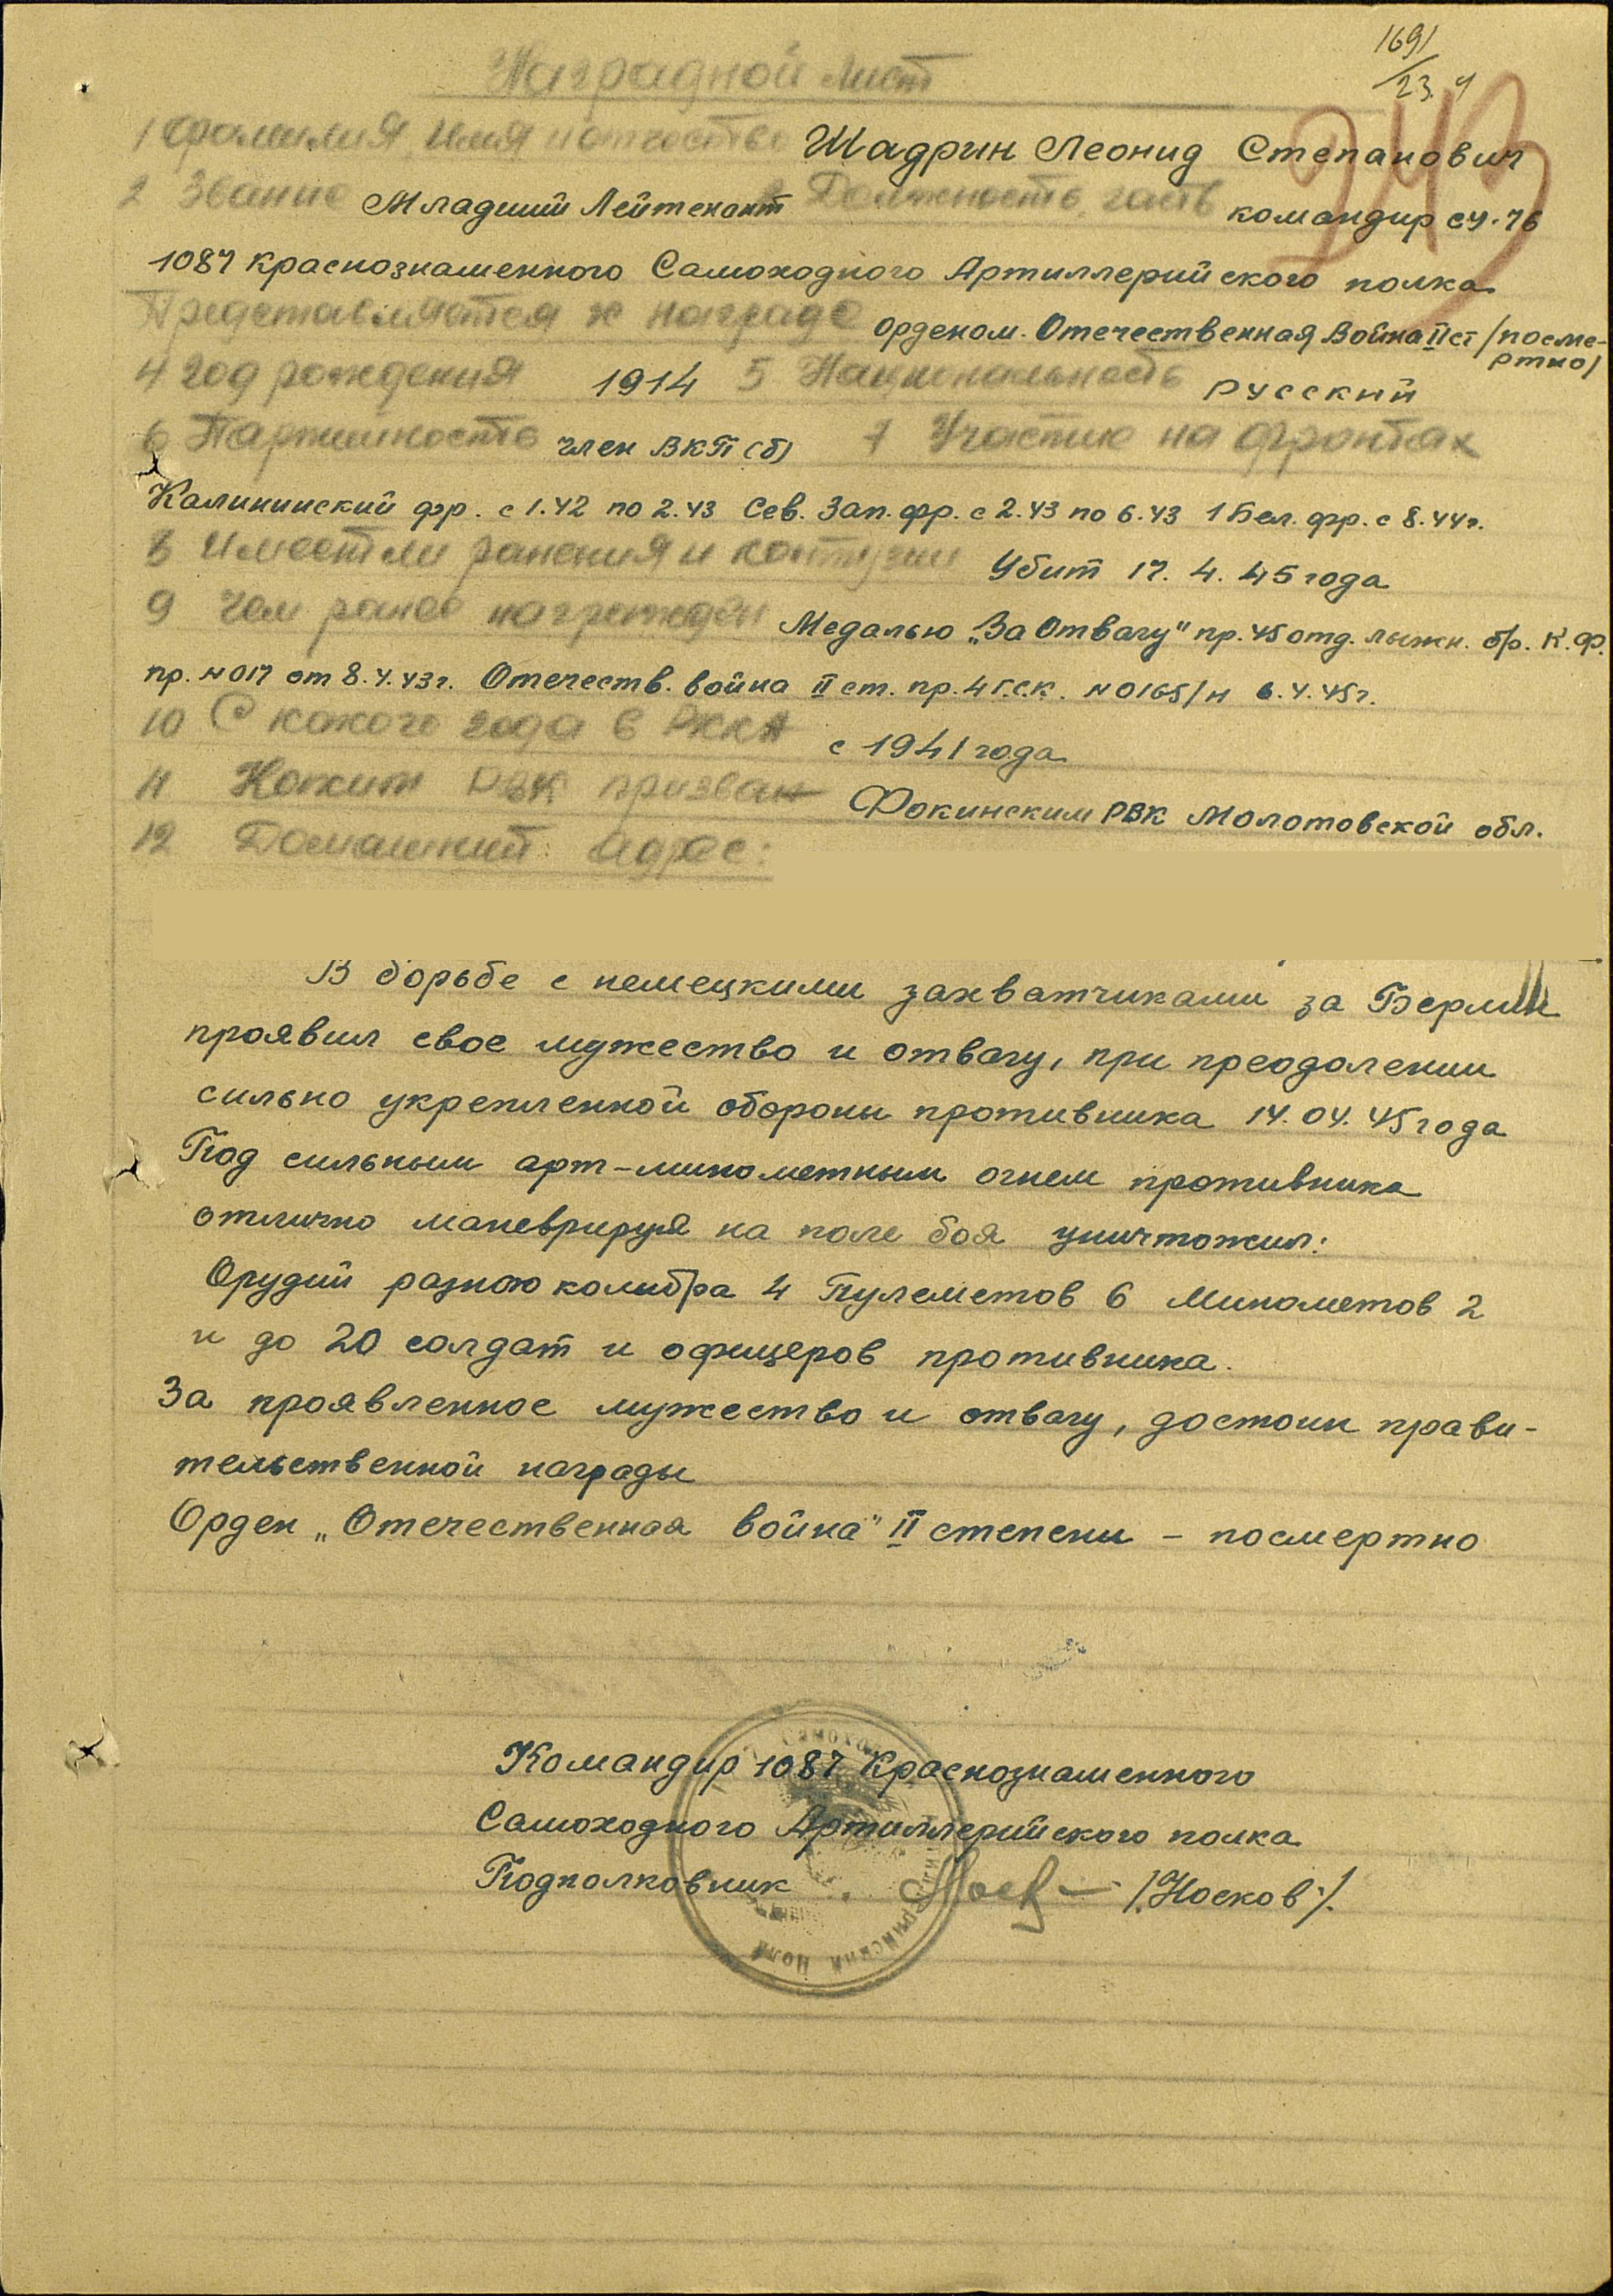 1691/23.4
Наградной лист
243
1 Фамилия, Имя и отчество Шадрин Леонид Степанович
2 Звание Младший Лейтенант 3 Должность, часть командир СУ-76
1087 Краснознаменного Самоходного Артиллерийского полка
Представляется к награде орденом. Отечественная Война II ст /посме-
ртно/
4 год рождения 1914 5 Национальность русский
6 Партийность член ВКП(б) 7 Участие на фронтах
Калининский фр. с 1.42 по 2.43 Сев. Зап. фр. с 2.43 по 6.43 1 Бел. фр. с 8.44г.
8 Имеет ли ранения и контузии Убит 17. 4. 45 года
9 Чем ранее награжден Медалью „За Отвагу" пр. 45 отд. лыжн. бр. К.Ф.
пр. №017 от 8.4.43г. Отечеств. война II ст. пр. 4 Г.С.К. №0165/н 6.4.45г.
10 С какого года в РККА с 1941 года
11 Каким РВК призван Фокинским РВК Молотовской обл.
12 Домашний адрес:
В борьбе с немецкими захватчиками за Берлин
проявил свое мужество и отвагу, при преодолении
сильно укрепленной обороны противника 14.04.45 года
Под сильным арт-минометным огнем противника
отлично маневрируя на поле боя уничтожил:
Орудий разного калибра 4 Пулеметов 6 Минометов 2
и до 20 солдат и офицеров противника.
За проявленное мужество и отвагу, достоин прави-
тельственной награды
Орден „Отечественная война" II степени – посмертно
Командир 1087 Краснознаменного
Самоходного Артиллерийского полка
Подполковник /Носков/.